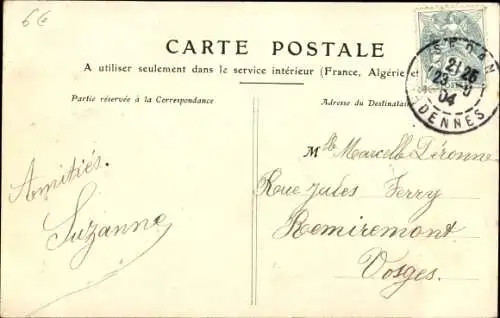 6€
CARTE POSTALE
A utiliser seulement dans le service intérieur (France, Algérie et
Partie réservée à la Correspondance
Adresse du Destinataire
SEDAN
21 25
23
04
ARDENNES
Mlle Marcelle Péronne
Rue Jules Ferry
Remiremont
Vosges.
Amitiés.
Suzanne